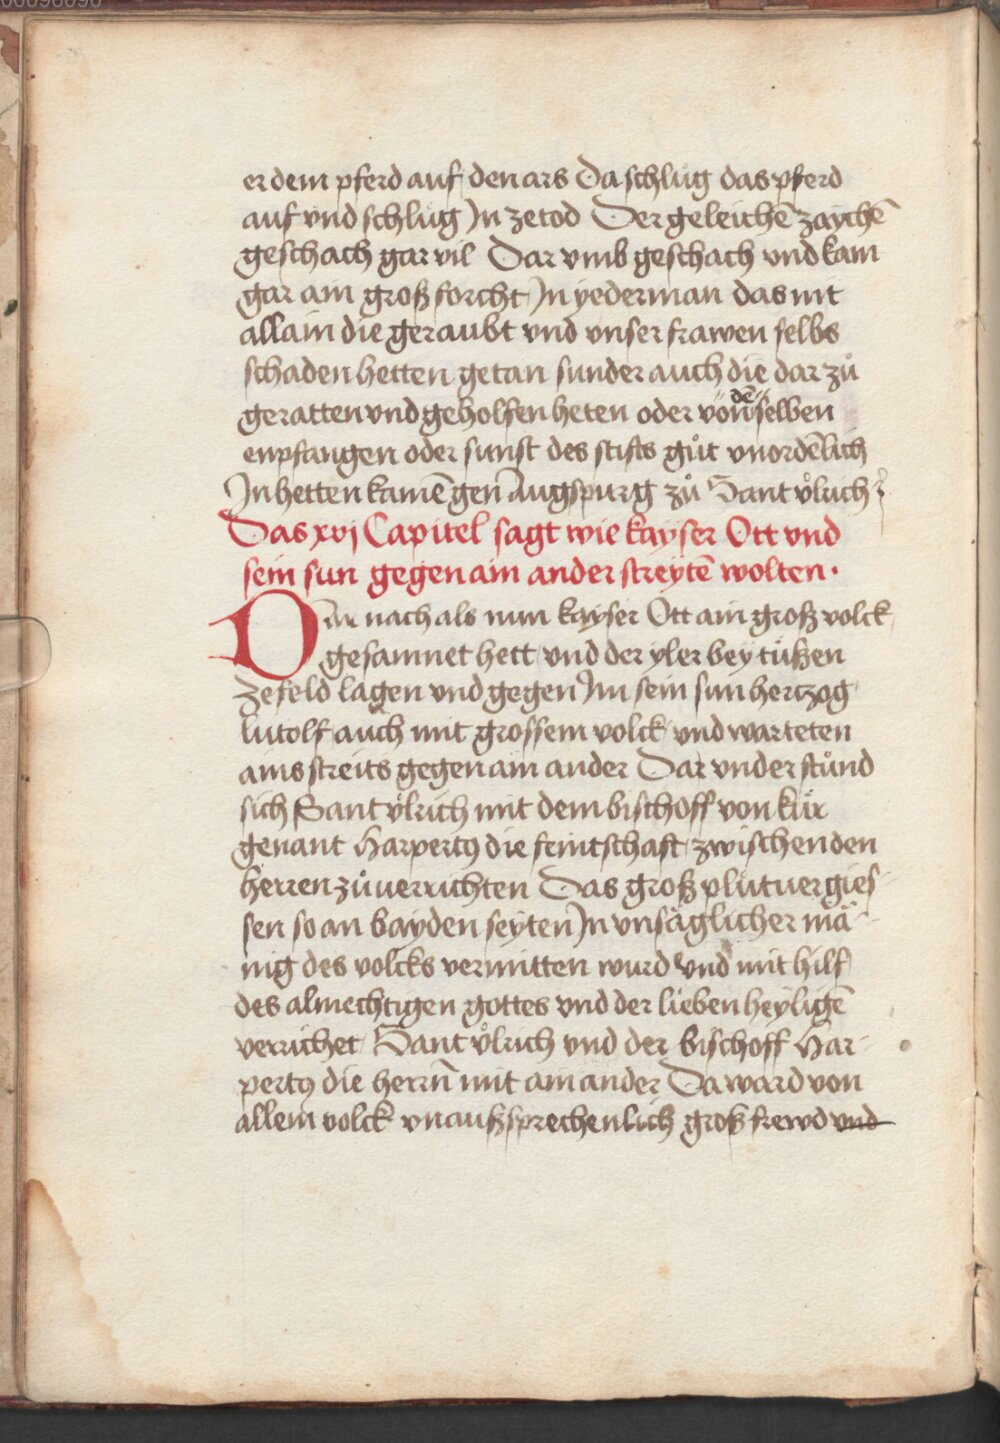 er dem pferd auf den ars Da schlůg das pferd
auf vnd schlůg Jn ze tod Der geleichē zaychē
geschach gar vil Dar vmb geschach vnd kam
gar ain groß forcht Jn yederman das nit
allain die geraubt vnd vnser frawen selbs
schaden hetten getan sunder auch die dar zů
geratten vnd geholfen heten oder von dē selben
enpfangen oder sunst des stifts gůt vnordēlich
Jn hetten kamē gen Augspurg zů Sant vͦlrich
Das xvj Capitel sagt wie kayser Ott vnd
sein sun gegen ain ander streytē wolten.
Dar nach als nun kayser Ott ain groß volck
gesamnet hett vnd der yler bey tüßen
ze feld lagen vnd gegen Jm sein sun hertzog
lutolf auch mit grossem volck vnd warteten
ains streits gegen ain ander Dar vnder stůnd
sich Sant vͦlrich mit dem bischoff von kur
genant Harpertꝰ die feintschaft zwischen den
herren zů uerrichten Das groß plůtuergies-
sen so an bayden seyten Jn vnsäglicher mä-
nig des volcks vermitten wurd vnd mit hilf
des almechtigen gottes vnd der lieben heyligē
verrichet Sant vͦlrich vnd der bischoff Har-
pertꝰ die herrn̄ mit ain ander Da ward von
allem volck vnaußsprechenlich groß frewd vnd